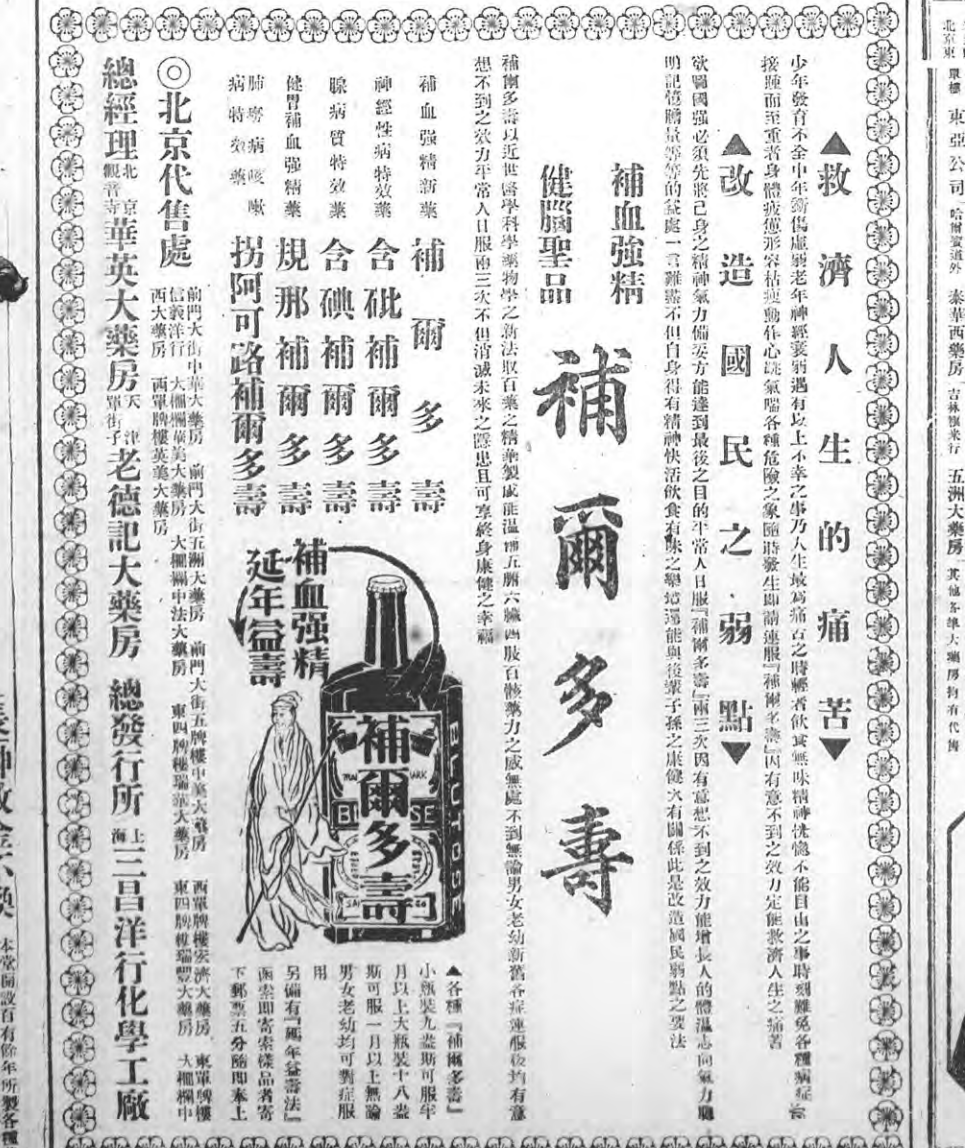 ▲救濟人生的痛苦▼
少年發育不全中年勞傷虛弱老年神經衰弱遇有以上不幸之事乃人生最為痛苦之時輕者飲食無味精神恍惚不能自由之事時刻難免各種病症
接踵而至重者身體疲憊形容枯瘦動作心跳氣喘各種危險之象隨時發生即請連服『補爾多壽』因有意不到之效力定能救濟人生之痛苦
▲改造國民之弱點▼
欲圖國强必須先將己身之精神氣力備妥方能達到最後之目的平常人日服『補爾多壽』兩三次因有意想不到之效力能增長人的體溫志向氣力聰
明記憶膽量等等的益處一言難盡不但自身得有精神快活飲食有味之樂境還能與後輩子孫之康健大有關係此是改造國民弱點之要法
補血強精
健腦聖品
補爾多壽
補爾多壽以近世醫學科學藥物學之新法取百藥之精華製成能溫補五臟六腑四肢百骸藥力之感無處不到無論男女老幼新舊各症連服後均有意
想不到之效力平常人日服兩三次不但消滅未來之隱患且可享終身康健之幸福
補血强精新藥 補爾多壽
神經性病特效藥 含砒補爾多壽
腺病質特效藥 含碘補爾多壽
健胃補血強精藥 規那補爾多壽
肺癆病咳嗽病特效藥 拐阿可路補爾多壽
補血强精
延年益壽
補爾多壽
▲各種『補爾多壽』
小瓶裝九盎斯可服半
月以上大瓶裝十八盎
斯可服一月以上無論
男女老幼均可對症服
用
另備有『延年益壽法』
函索即寄索樣品者寄
下郵票五分隨即奉上
◎北京代售處
前門大街中華大藥房 前門大街五洲大藥房 前門大街五牌樓中美大藥房 西單牌樓宏濟大藥房 東單牌樓
信義洋行 大柵欄華美大藥房 大柵欄中法大藥房 東四牌樓瑞華大藥房 東四牌樓瑞豐大藥房 大柵欄中
西大藥房 西單牌樓英美大藥房
總經理 北京觀音寺 華英大藥房 天津單街子 老德記大藥房 總發行所 上海 三昌洋行化學工廠
東亞公司 哈爾濱道外 泰華西藥房 五洲大藥房 其他各埠大藥房均有代售
本堂開設百有餘年所製各種